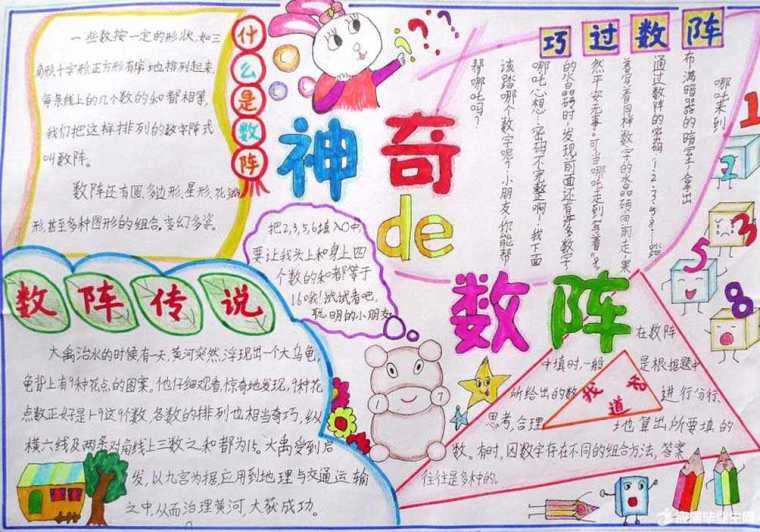 什么是数阵
一些数按一定的形状,如三
角形十字形正方形有序地排列起来,
每条线上的几个数的和都相等,
我们把这样排列的数字阵式
叫数阵。
数阵还有圆、多边形、星形、花瓣
形,甚至多种图形的组合,变幻多姿。
神奇
de
数阵
巧过数阵
哪吒来到
布满暗器的暗室,拿出
通过数阵的密码
着写着同样数字的水晶砖向前走,果
然平安无事。可当哪吒走到写着“8”
的水晶砖时,发现前面还有许多数字
哪吒心想:密码不完整啊!我下面
该踏哪个数字呢?小朋友你能帮
帮哪吒吗?
1
2
3
5
8
把2,3,5,6填入○中,
要让我头上和身上四
个数的和都等于
16哦!试试看吧,
聪明的小朋友
1
7
数阵传说
大禹治水的时候有一天,黄河突然浮现出一个大乌龟,
龟背上有9种花点的图案。他仔细观看,惊奇地发现,9种花
点数正好是1-9这9个数,各数的排列也相当奇巧,纵
横六线及两条对角线上三数之和都为15。大禹受到启
发,以九宫为据应用到地理与交通运输
之中,从而治理黄河,大获成功。
找道窍
在数阵
中填时,一般是根据题中
所给出的数进行分析、
思考,合理地算出所要填的
数。有时,因数字存在不同的组合方法,答案
往往是多种的。